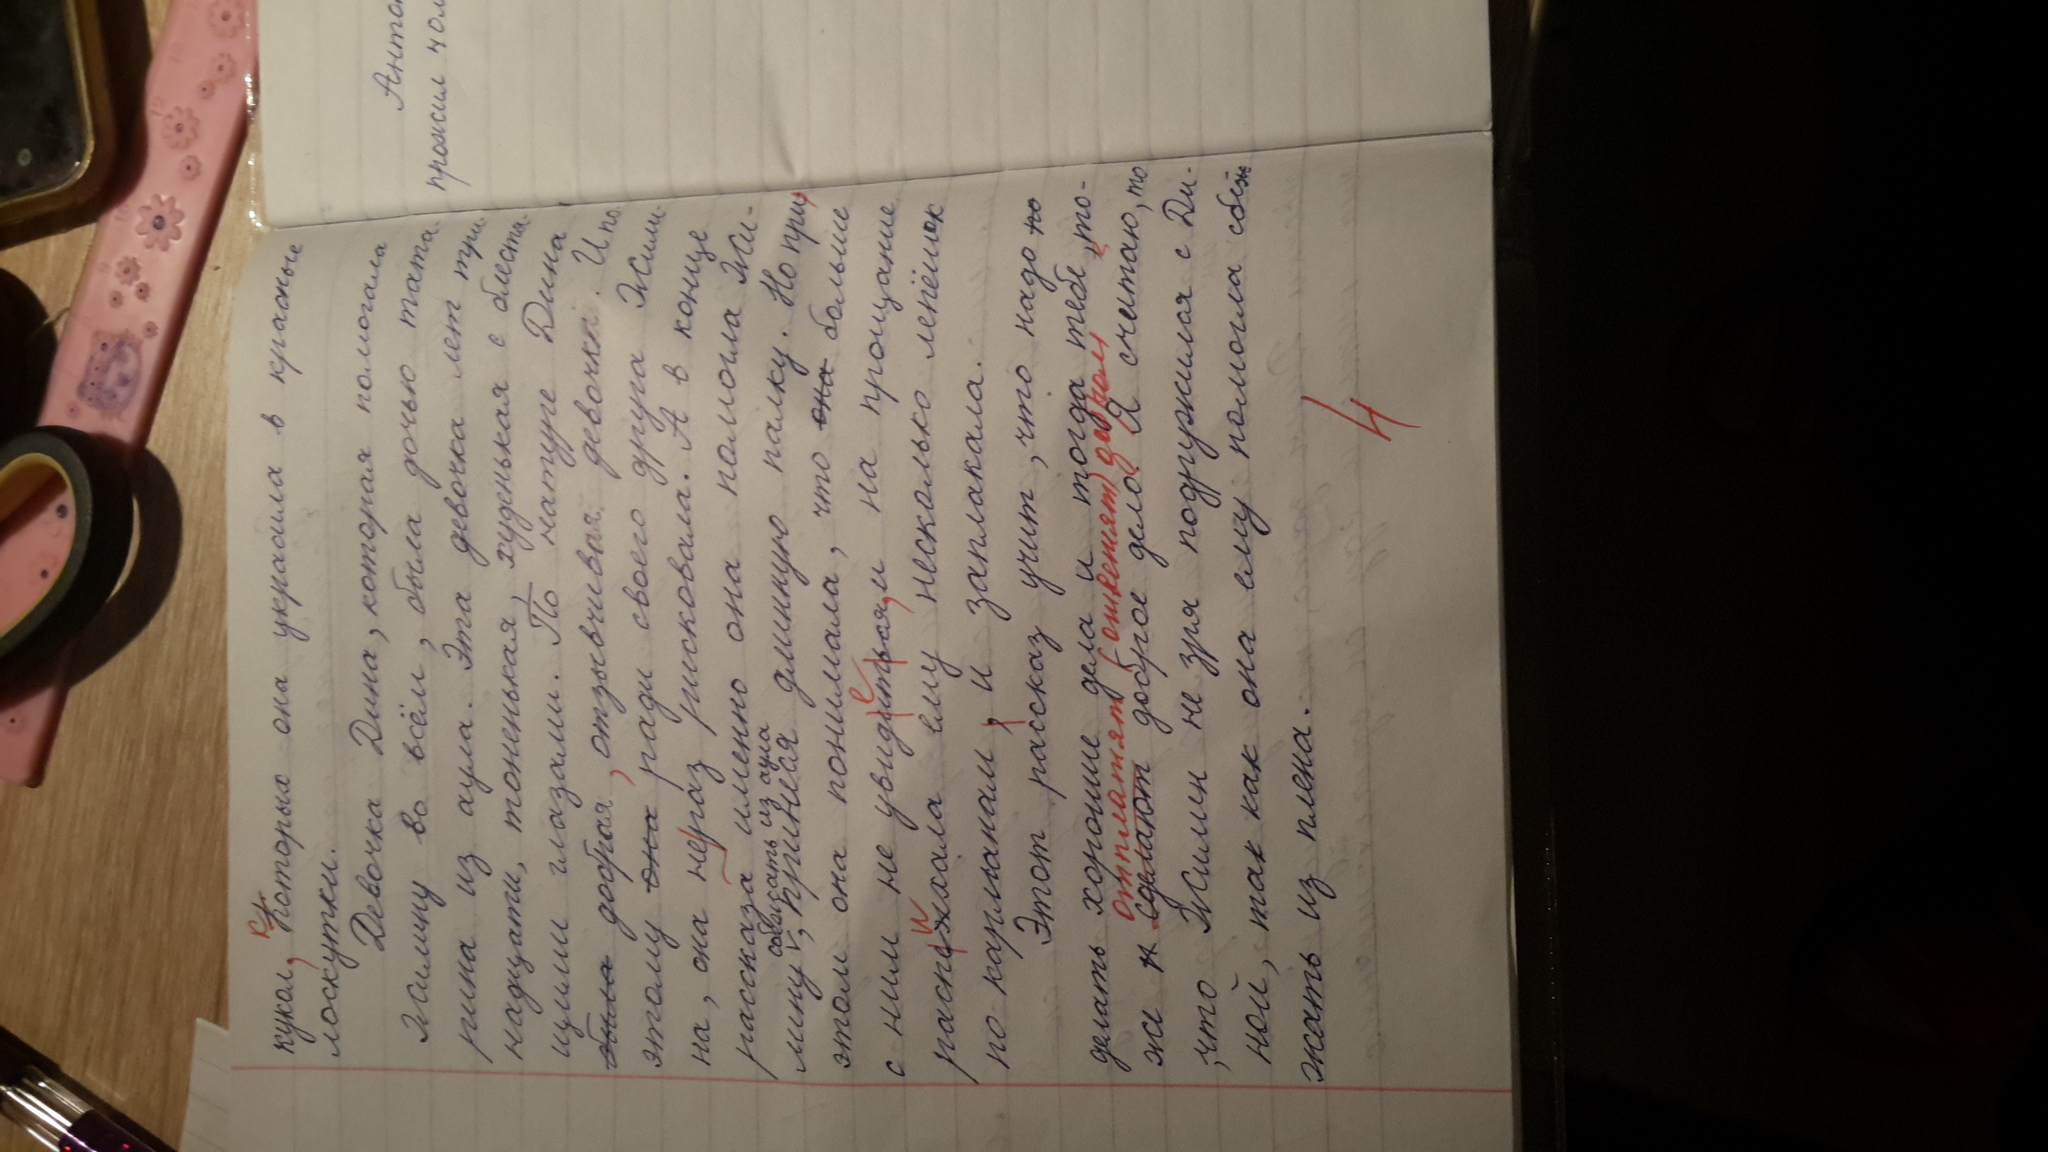 кукол, которых она украсила в красные
лоскутки.
Девочка Дина, которая помогала
Жилину во всём, была дочью тата-
рина из аула. Эта девочка лет три-
надцати, тоненькая, худенькая с блестя-
щими глазами. По натуре Дина
была добрая, отзывчивая девочка. И по
этому она ради своего друга Жили-
на, она не раз рисковала. А в конце
рассказа именно она помогла Жи-
сбежать из аула
лину, принеся длинную палку. Но при
этом она понимала, что она больше
с ним не увидиться, и на прощание
распехала ему несколько лепёшок
по карманам, и заплакала.
Этот рассказ учит, что надо
делать хорошие дела и тогда тебе, то-
отплатят (ответят) добром
же сделают доброе дело. Я считаю, то
,что Жилин не зря подружился с Ди-
ной, так как она ему помогла сбе-
жать из плена.
4
Антон
прожил чол